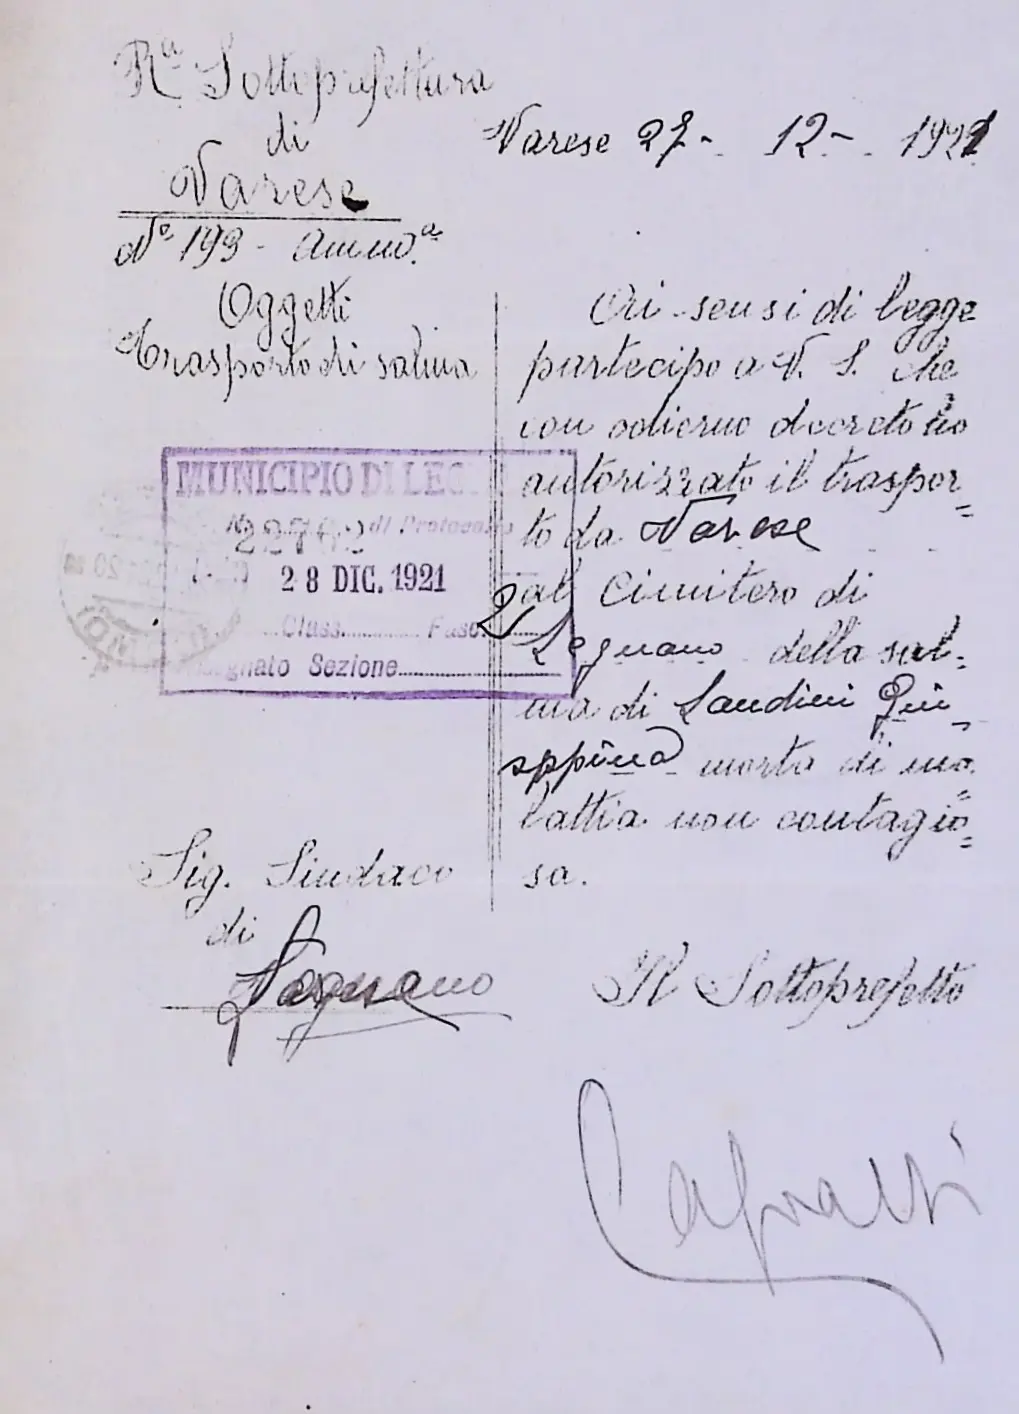 Rª Sottoprefettura
di
Varese
Varese 27 - 12 - 1921
Nº 193 - Ammª
Oggetti
Trasporto di salma
Ai sensi di legge
partecipo a V. S. che
con odierno decreto ho
autorizzato il traspor=
to da Varese
al Cimitero di
Legnano della sal=
ma di Landini Giu=
seppina morta di ma=
lattia non contagio=
sa.
MUNICIPIO DI LEG
Nº di Protocollo
28 DIC. 1921
Class. Fasc. 2
Sezione
Sig. Sindaco
di
Legnano
Il Sottoprefetto